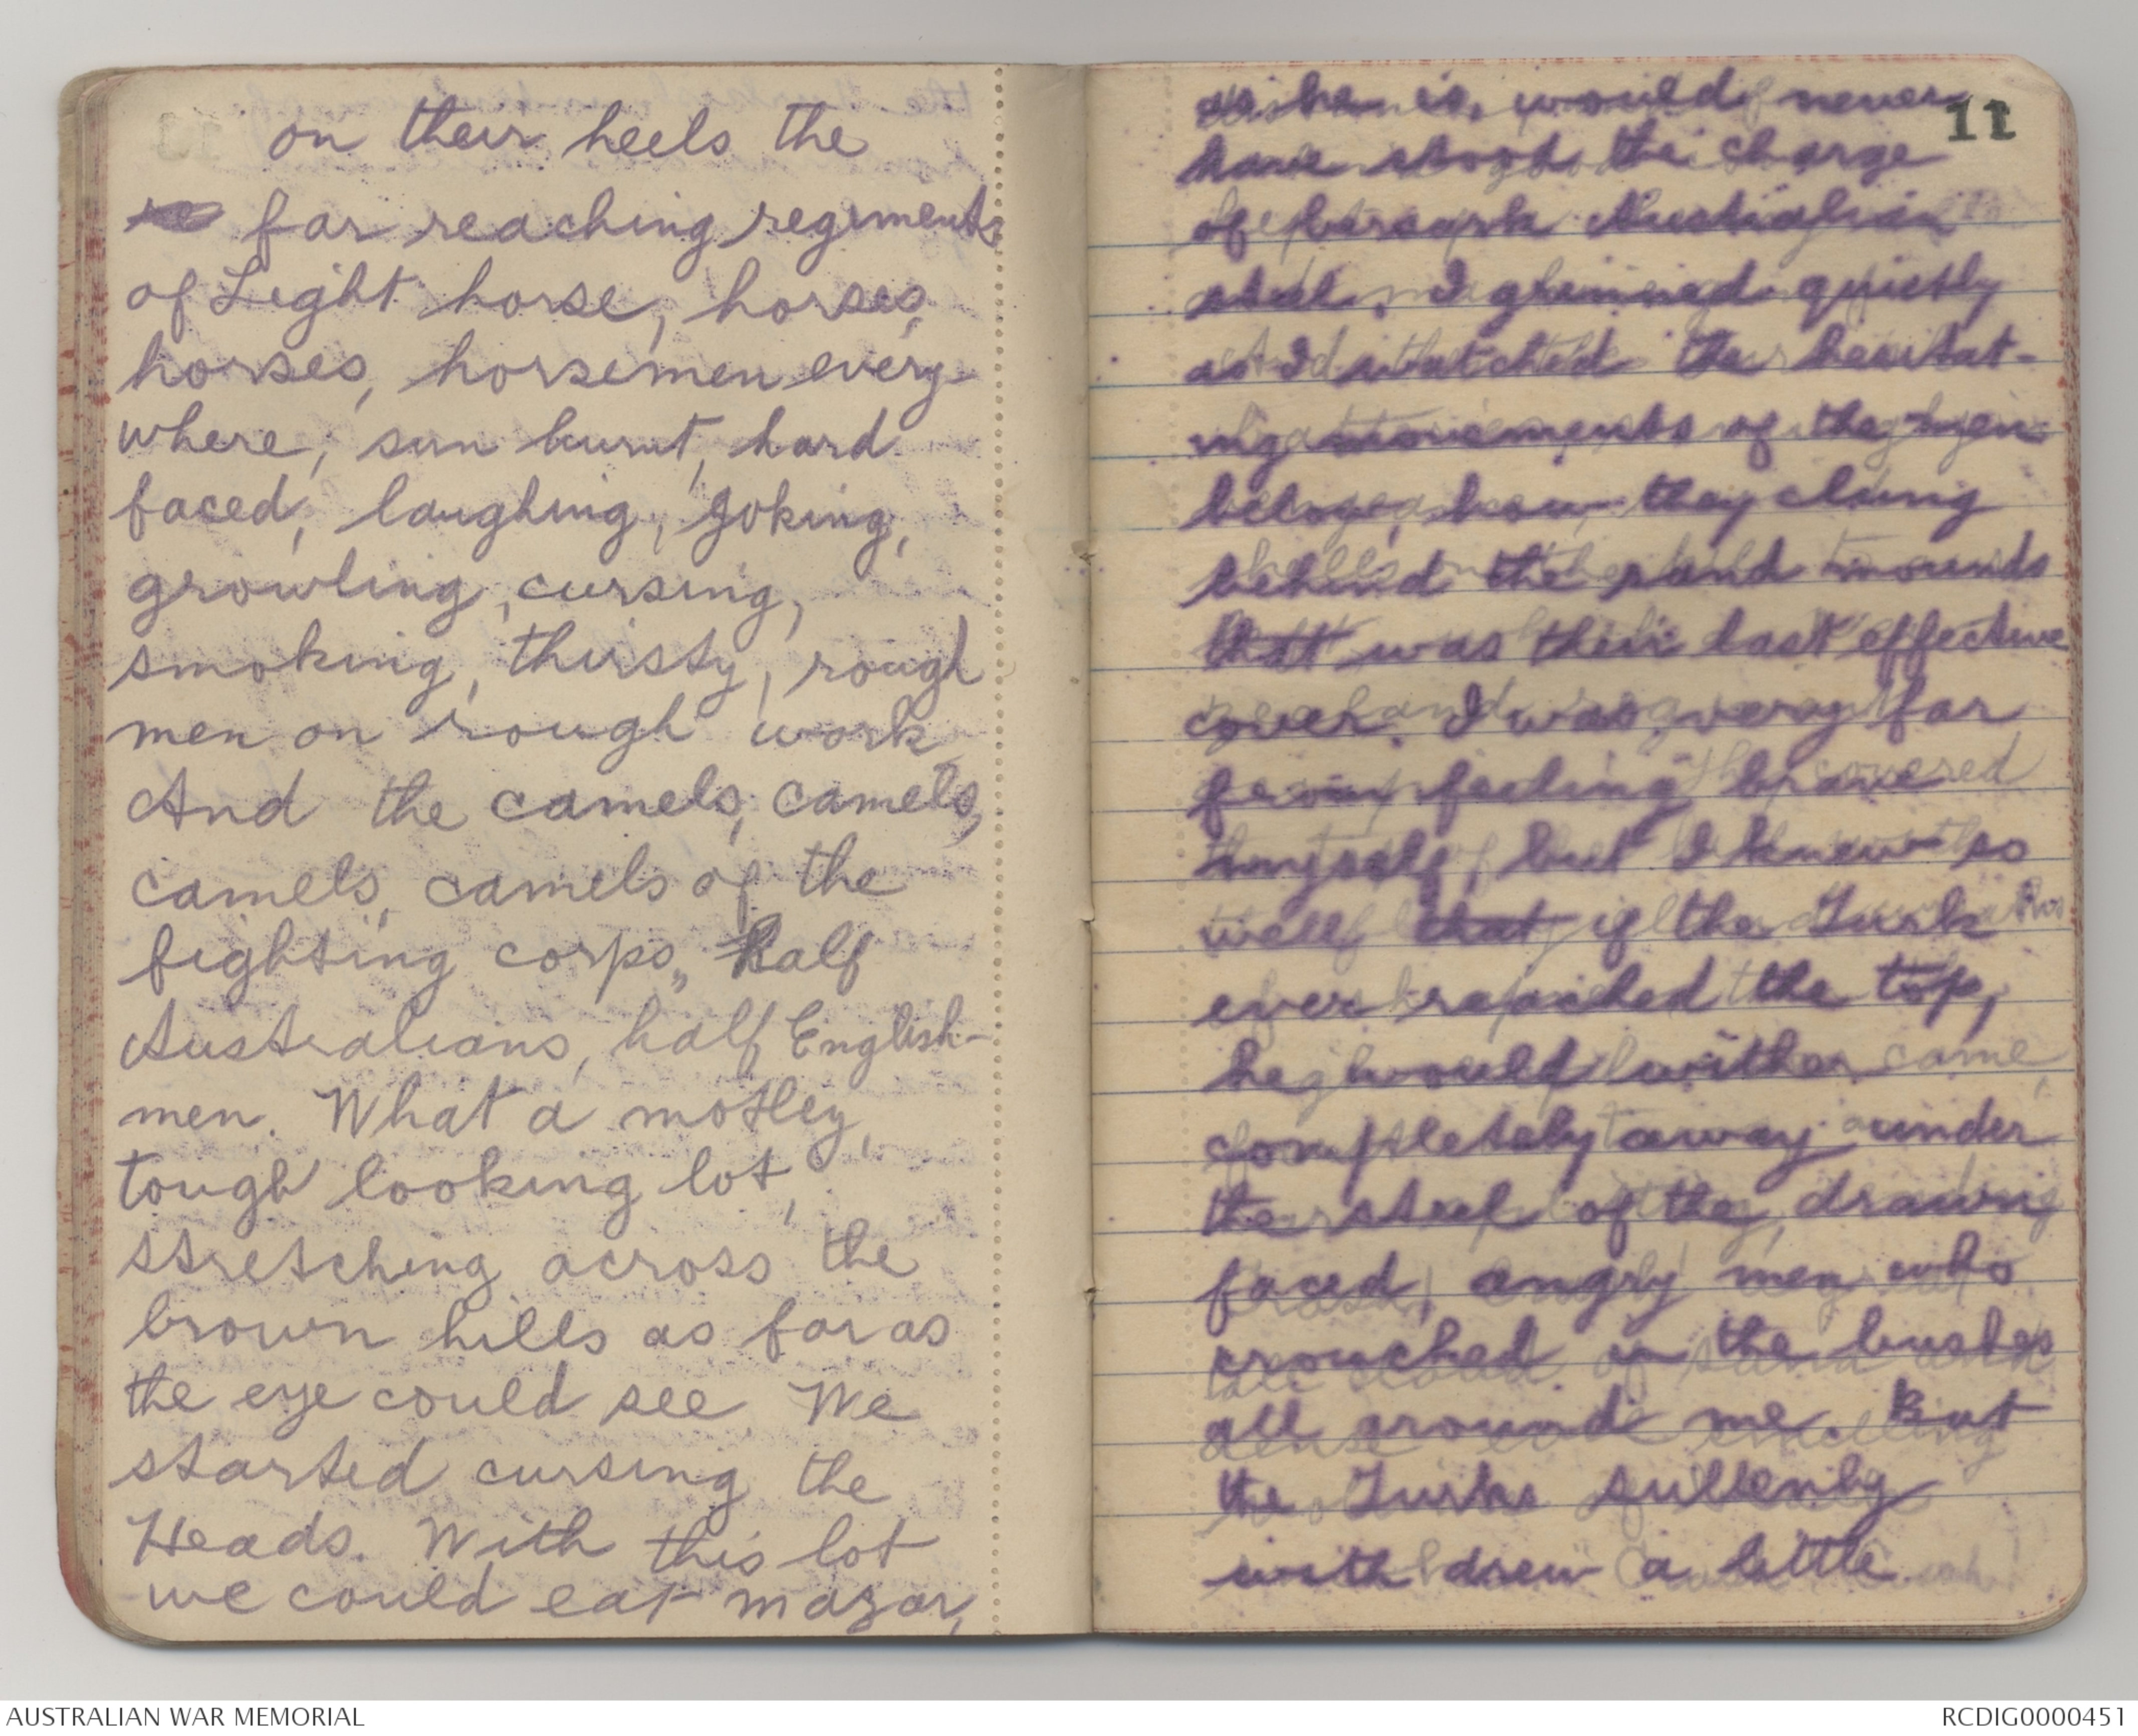 on their heels the
far reaching regiments
of Light horse, horses,
horses, horsemen every-
where, sun burnt, hard
faced, laughing, joking,
growling, cursing,
smoking, thirsty, rough
men on rough work
And the camels, camels,
camels, camels of the
fighting corps, half
Australians, half English-
men. What a motley,
tough looking lot,
stretching across the
brown hills as far as
the eye could see. We
started cursing the
Heads. With this lot
we could eat mazar,
11
as he is, would never
have stood the charge
of bersark Australian
steel. I grinned quietly
as I watched the hesitat-
ing movements of the men
below, how they clung
behind the sand mounds
that was their last effective
cover. I was very far
from feeling brave
myself, but I knew so
well that if the Turk
ever reached the top,
he would wither
completely away under
the steel of the drawn
faced, angry men who
crouched in the bushes
all around me. But
the Turks sullenly
with drew a little.
AUSTRALIAN WAR MEMORIAL
RCDIG0000451